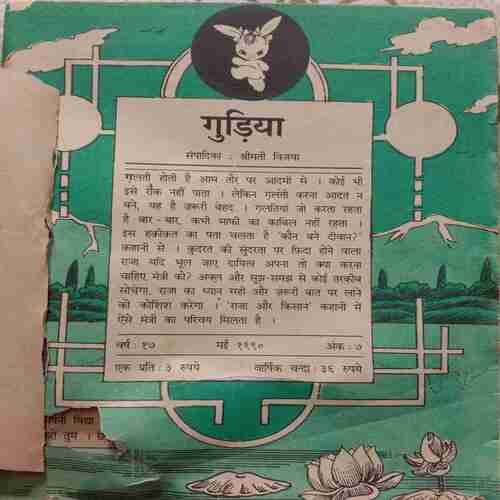 गुड़िया
संपादिका : श्रीमती विजया
ग़लती होती है आम तौर पर आदमी से । कोई भी
इसे रोक नहीं पाता । लेकिन ग़लती करना आदत न
बने, यह है ज़रूरी बेहद । गलतियां जो करता रहता
है बार-बार, कभी माफी का काबिल नहीं रहता ।
इस हक़ीक़त का पता चलता है 'कौन बने दीवान?'
कहानी से । कुदरत की सुंदरता पर फ़िदा होने वाला
राजा यदि भूल जाए दायित्व अपना तो क्या करना
चाहिए मंत्री को? अक़्ल और सूझ-समझ से कोई तरकीब
सोचेगा, राजा का ध्यान सही और ज़रूरी बात पर लाने
की कोशिश करेगा । 'राजा और किसान' कहानी में
ऐसे मंत्री का परिचय मिलता है ।
वर्ष : १७ मई १९९० अंक : ७
एक प्रति : ३ रुपये वार्षिक चन्दा : ३६ रुपये
तुम ।